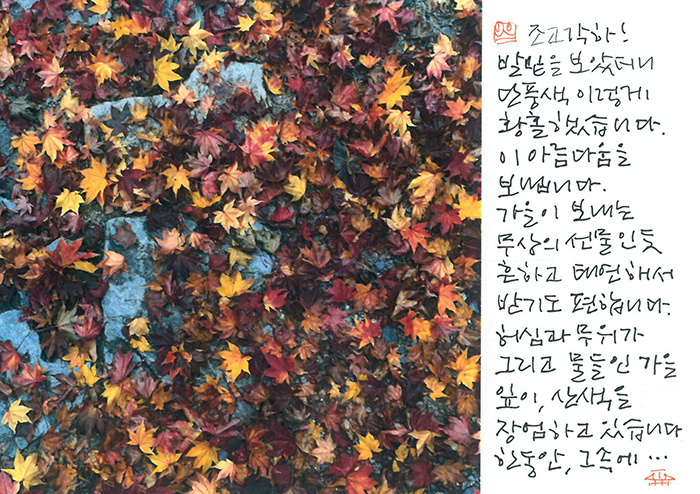 조고각하!
발밑을 보았더니
단풍색 이렇게
황홀했습니다.
이 아름다움을
보냅니다.
가을이 보내는
무상의 선물인듯
흔하고 태연해서
받기도 편합니다.
허심과 무위가
그리고 물들인 가을
잎이, 산색을
장엄하고 있습니다
한동안, 그속에 …